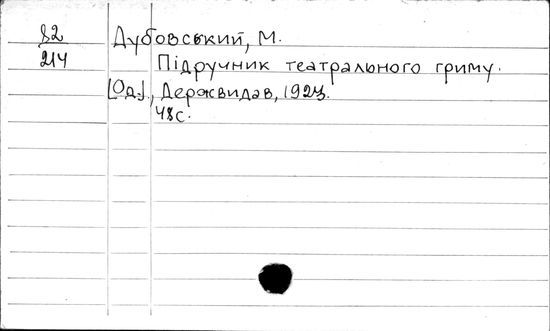 82 Дубовський, М.
214 Підручник театрального гриму.
[Од.], Держвидав, 1923.
48 с.